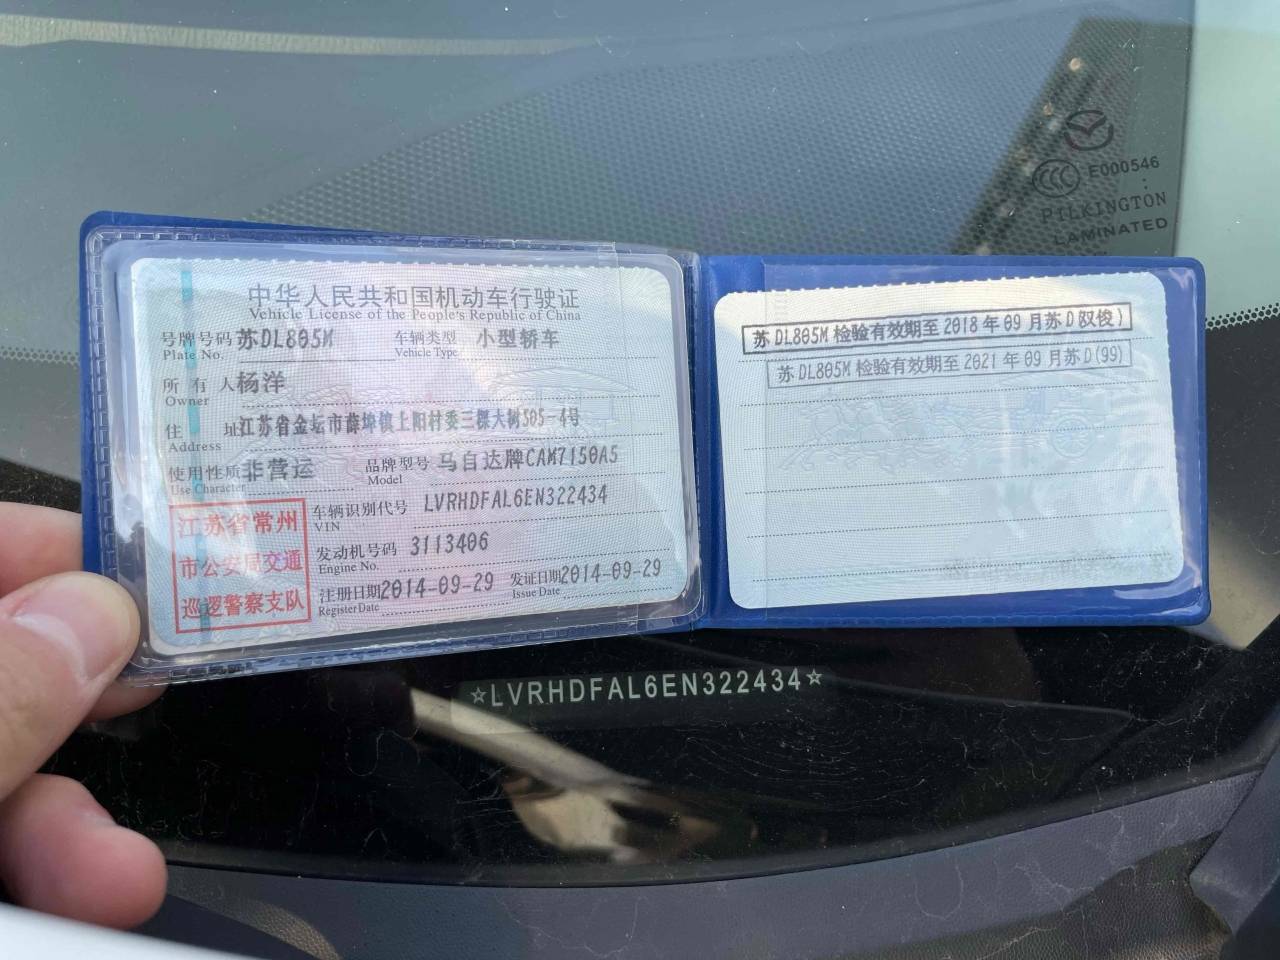 中华人民共和国机动车行驶证
Vehicle License of the People's Republic of China
号牌号码 苏DL805M 车辆类型 小型轿车
Plate No. Vehicle Type
所有人 杨洋
Owner
住址 江苏省金坛市薛埠镇上阳村委三棵大树505-4号
Address
使用性质 非营运 品牌型号 马自达牌CAM7150A5
Use Character Model
江苏省常州
市公安局交通
巡逻警察支队
车辆识别代号 LVRHDFAL6EN322434
VIN
发动机号码 3113406
Engine No.
注册日期 2014-09-29 发证日期 2014-09-29
Register Date Issue Date
苏DL805M 检验有效期至2018年09月苏D
苏DL805M 检验有效期至2021年09月苏D(99)
☆LVRHDFAL6EN322434☆
CCC E000546
PILKINGTON
LAMINATED